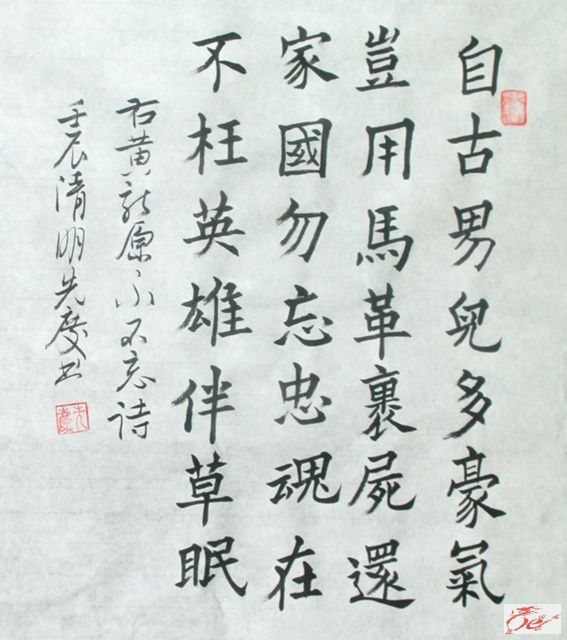 自古男兒多豪氣
豈用馬革裹屍還
家國勿忘忠魂在
不枉英雄伴草眠
右黄龍原小不忘詩
壬辰清明先慶书